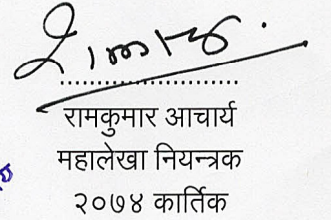 रामकुमार आचार्य
महालेखा नियन्त्रक
२०७४ कार्तिक